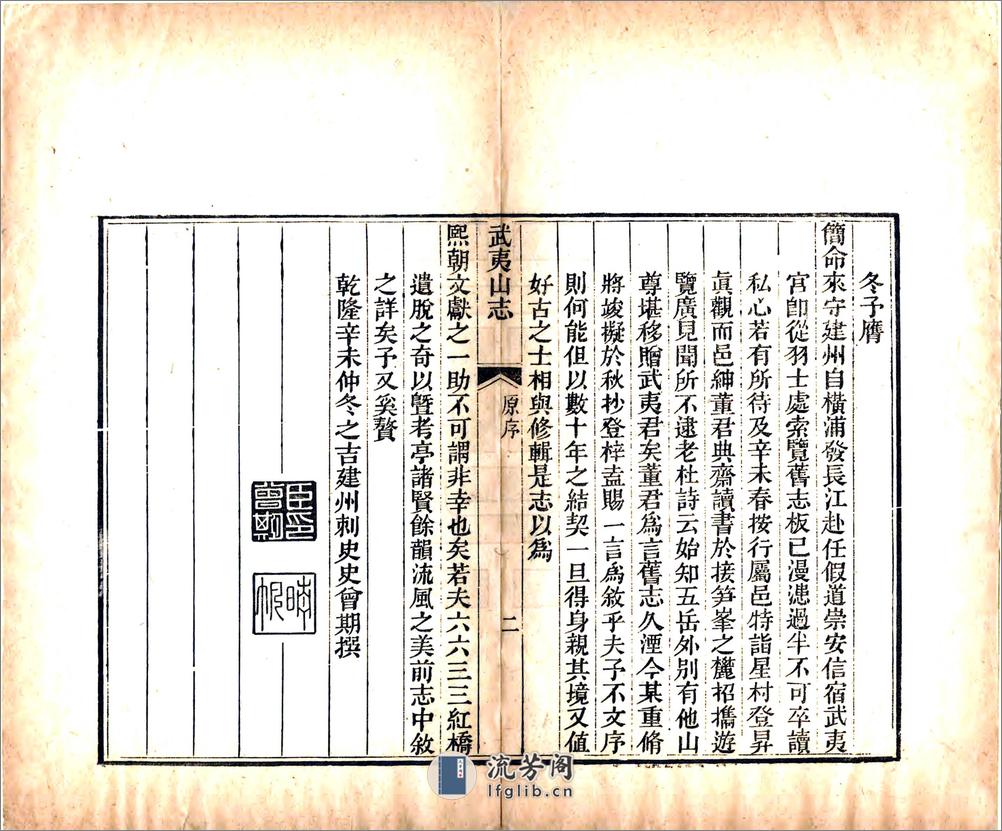 冬予膺
簡命來守建州自橫浦發長江赴任假道崇安信宿武夷
宮卽從羽士處索覽舊志板已漫漶過半不可卒讀
私心若有所待及辛未春按行屬邑特詣星村登昇
眞觀而邑紳董君典齋讀書於接笋峯之麓招攜遊
覽廣見聞所不逮老杜詩云始知五岳外別有他山
尊堪移贈武夷君矣董君爲言舊志久湮今某重脩
將竣擬於秋抄登梓盍賜一言爲敘乎夫子不文序
則何能但以數十年之結契一旦得身親其境又值
好古之士相與修輯是志以爲
武夷山志
原序
二
熙朝文獻之一助不可謂非幸也矣若夫六六三三紅橋
遺脫之奇以曁考亭諸賢餘韻流風之美前志中敘
之詳矣予又奚贅
乾隆辛未仲冬之吉建州刺史史曾期撰
臣印曾期
流芳阁
lfglib.cn